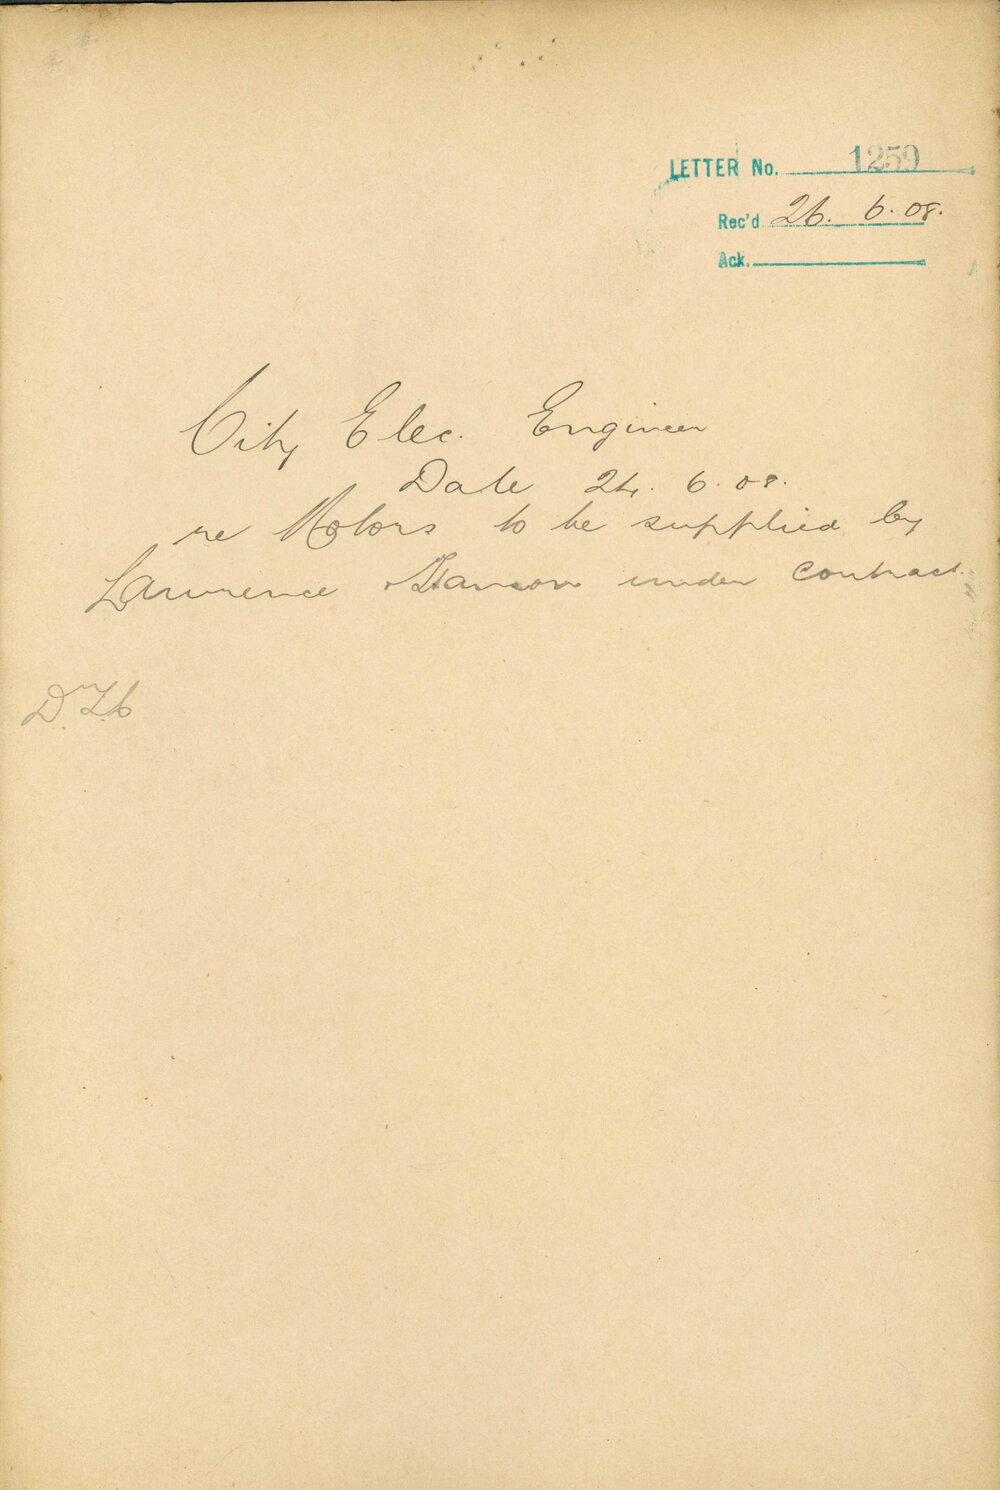 LETTER No. 1259
Rec'd 26. 6. 08.
Ack.
City Elec. Engineer
Date 24. 6. 08.
re Motors to be supplied by
Lawrence Hanson under contract.